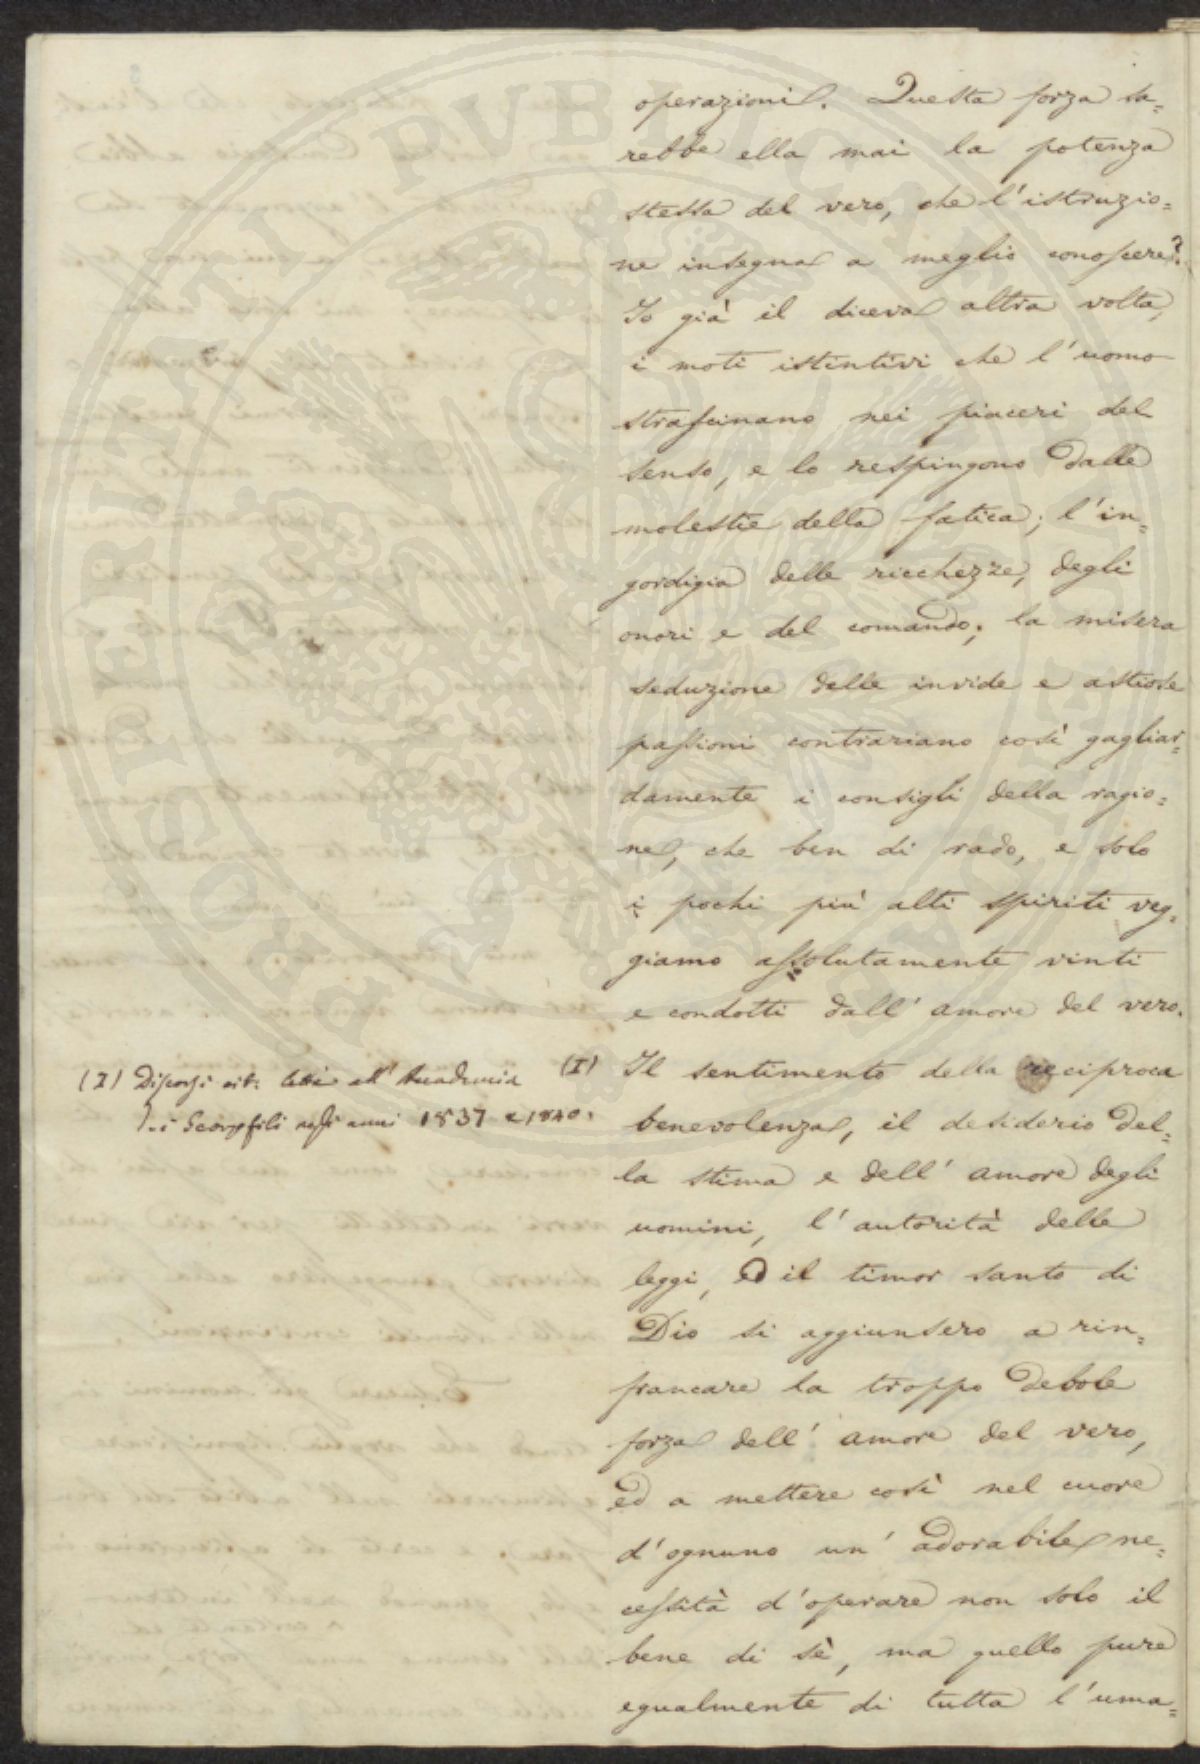 operazioni. Questa forza sa=
rebbe ella mai la potenza
stessa del vero, che l'istruzio=
ne insegna a meglio conoscere?
Io già il diceva altra volta,
i moti istintivi che l'uomo
strascinano nei piaceri del
senso, e lo respingono dalle
molestie della fatica; l'in=
gordigia delle ricchezze, degli
onori e del comando; la misera
seduzione delle invide e astiose
passioni contrariano così gagliar=
damente i consigli della ragio=
ne, che ben di rado, e solo
i pochi più alti spiriti veg=
giamo assolutamente vinti
e condotti dall'amore del vero.
(I) Il sentimento della reciproca
benevolenza, il desiderio del=
la stima e dell'amore degli
uomini, l'autorità delle
leggi, ed il timor santo di
Dio si aggiunsero a rin=
francare la troppo debole
forza dell'amore del vero,
ed a mettere così nel cuore
d'ognuno un'adorabile ne=
cessità d'operare non solo il
bene di sè, ma quello pure
egualmente di tutta l'uma=
(I) Discorsi letti all'Accademia
dei Georgofili negli anni 1837 e 1840.
PROSPERITATI PVBLICAE